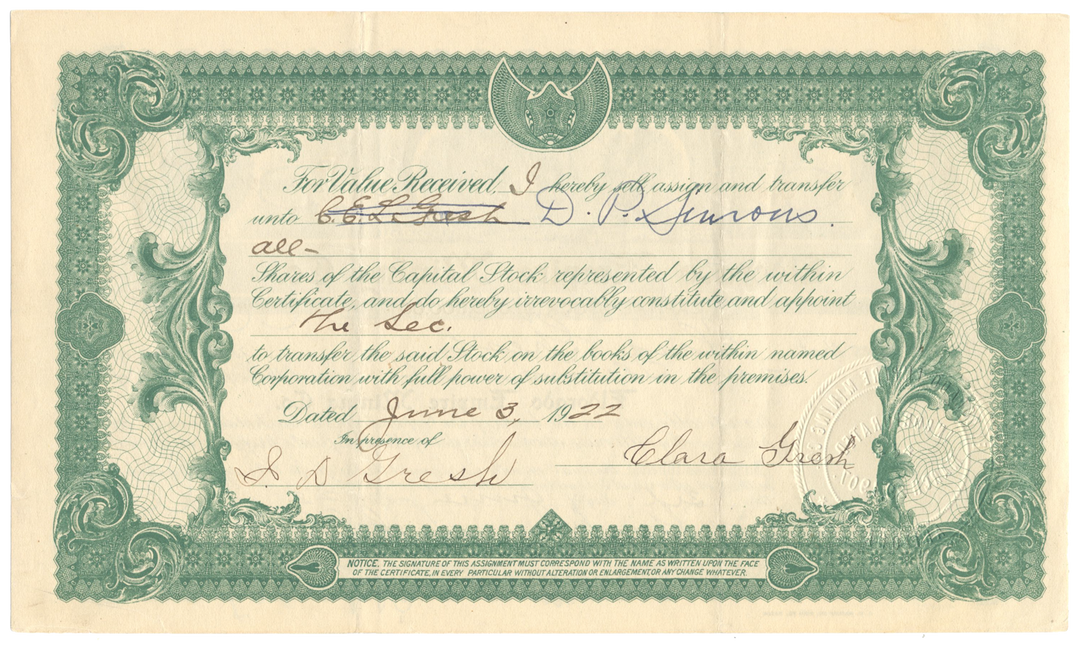 For Value Received, I hereby sell, assign and transfer
unto C. E. L. Gresh D. P. Simons.
all—
Shares of the Capital Stock represented by the within
Certificate, and do hereby irrevocably constitute and appoint
The Sec.
to transfer the said Stock on the books of the within named
Corporation with full power of substitution in the premises.
Dated June 3, 1922
In presence of
Clara Gresh
J. D Gresh
NOTICE. THE SIGNATURE OF THIS ASSIGNMENT MUST CORRESPOND WITH THE NAME AS WRITTEN UPON THE FACE
OF THE CERTIFICATE, IN EVERY PARTICULAR WITHOUT ALTERATION OR ENLARGEMENT, OR ANY CHANGE WHATEVER.